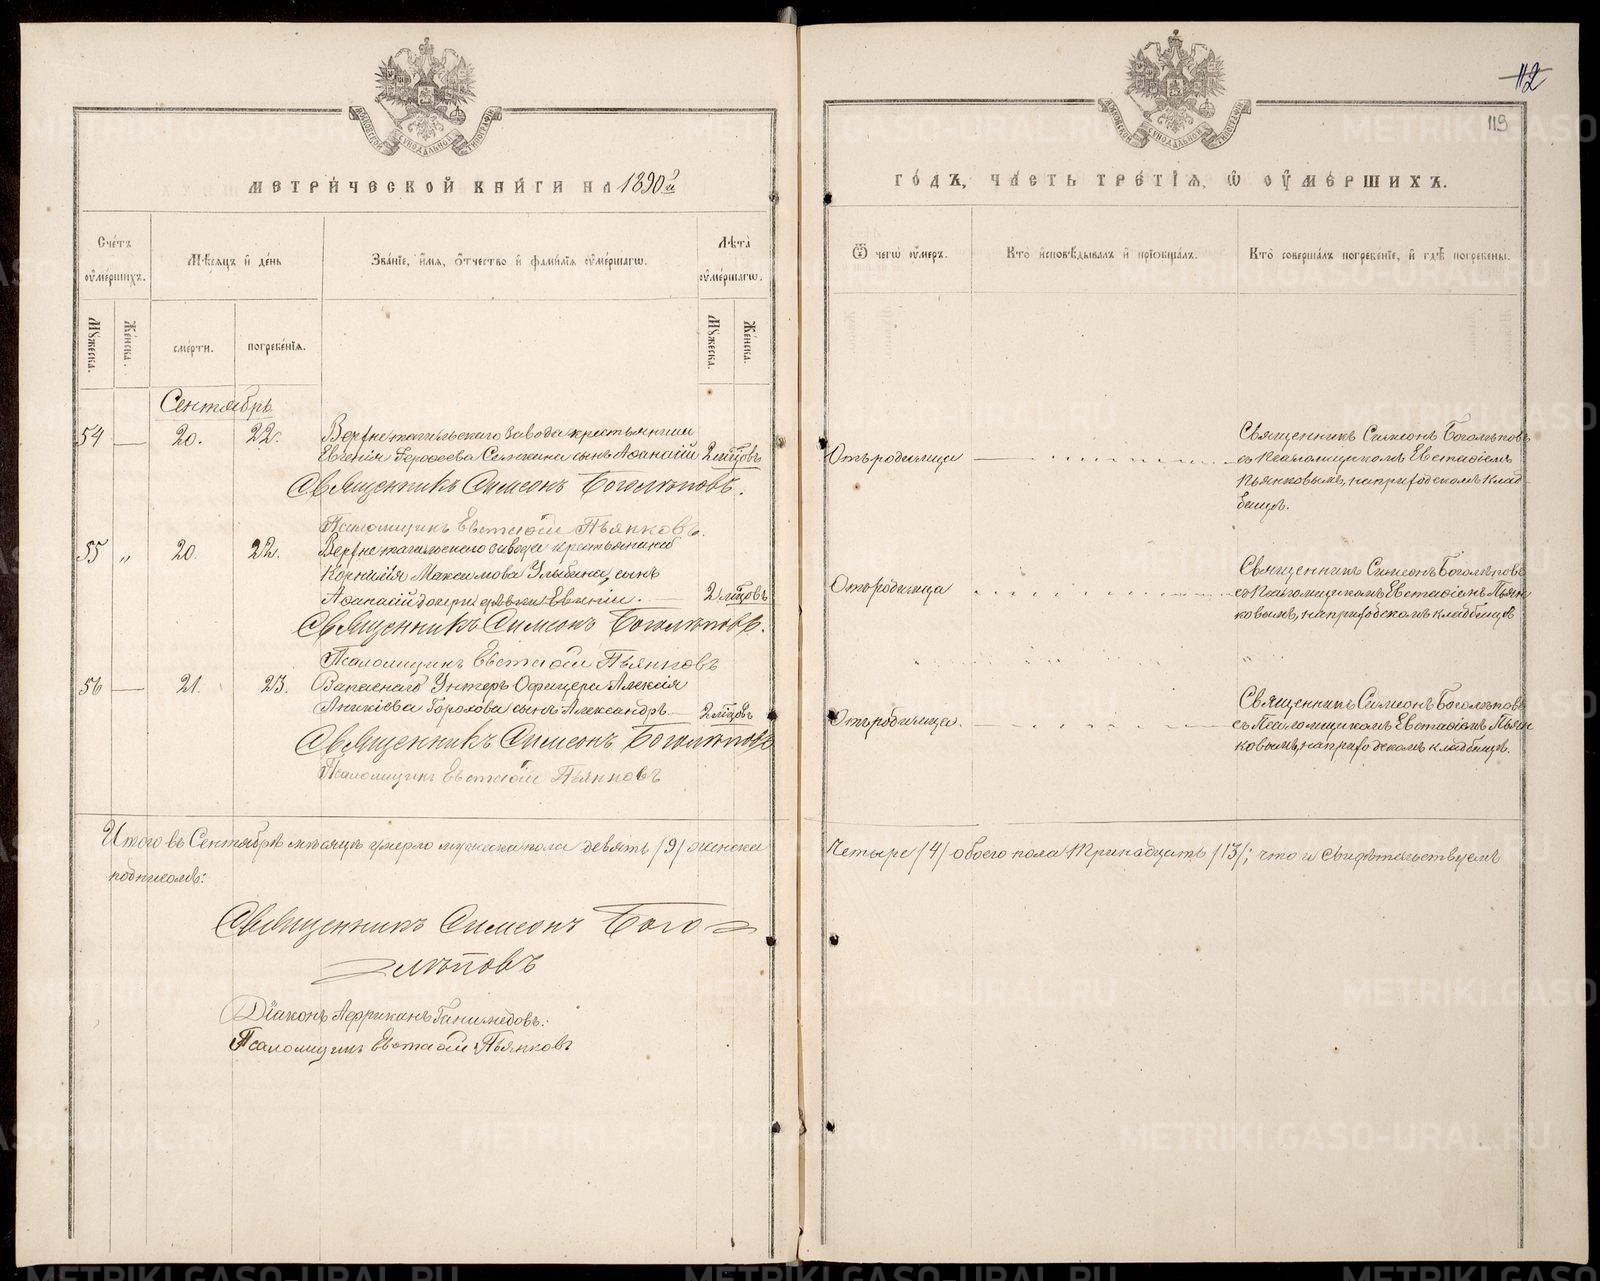 МОСКОВСКОЙ СѴНОДАЛЬНОЙ ТИПОГРАФІИ
МЕТРИ́ЧЕСКОЙ КНИ́ГИ НА 1890й
Сче́тъ оуме́ршихъ.
Мѣ́сяцъ и де́нь
Зва́ніе, и́мя, о́тчество и фами́лія оуме́ршагѡ.
Лѣ́та оуме́ршагѡ.
Му́жеска.
Же́нска.
сме́рти.
погребе́нія.
Му́жеска.
Же́нска.
Сентябрь
54 — 20. 22. Верхнетагильскаго завода крестьянина
Евгенія Ерофеева сынъ Афанасій 2 мѣсяцовъ
Священникъ Симеонъ Боголѣповъ.
Псаломщикъ Евстафій Пьянковъ.
55 „ 20 22. Верхнетагильскаго завода крестьянина
Корнилія Максимова Улыбина, сынъ
Афанасій 2 мѣсяцовъ
Священникъ Симеонъ Боголѣповъ.
Псаломщикъ Евстафій Пьянковъ
56 — 21. 23. Запаснаго Унтеръ Офицера Алексія
Аникіева Горохова сынъ Александръ — 2 мѣсяцовъ
Священникъ Симеонъ Боголѣповъ
Псаломщикъ Евстафій Пьянковъ
Итого въ Сентябрѣ мѣсяцѣ умерло мужеска пола девять /9/ женска
подписомъ:
Священникъ Симеонъ Бого-
лѣповъ
Діаконъ Африканъ Ганимедовъ.
Псаломщикъ Евстафій Пьянковъ
112
113
МОСКОВСКОЙ СѴНОДАЛЬНОЙ ТИПОГРАФІИ
ГО́ДЪ, ЧА́СТЬ ТРЕ́ТІЯ, Ѡ ОУМЕ́РШИХЪ.
Ѿ чегѡ̀ оу́меръ.
Кто̀ исповѣ́дывалъ и пріобща́лъ.
Кто̀ соверша́лъ погребе́ніе, и гдѣ̀ погребены̀.
Отъ родимца
Священникъ Симеонъ Боголѣповъ
съ псаломщикомъ Евстафіемъ
Пьянковымъ, на приходскомъ клад-
бищѣ.
Отъ родимца
Священникъ Симеонъ Боголѣповъ
съ Псаломщикомъ Евстафіемъ Пьян-
ковымъ, на приходскомъ кладбищѣ
Отъ родимца.
Священникъ Симеонъ Боголѣповъ
съ Псаломщикомъ Евстафіемъ Пьян-
ковымъ, на приходскомъ кладбищѣ.
Четыре /4/ обоего пола тринадцать /13/; что и свидѣтельствуемъ
METRIKI.GASO-URAL.RU